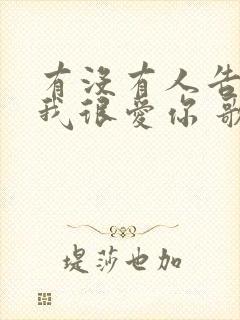 有没有人告
我很爱你 歌
堤莎也加